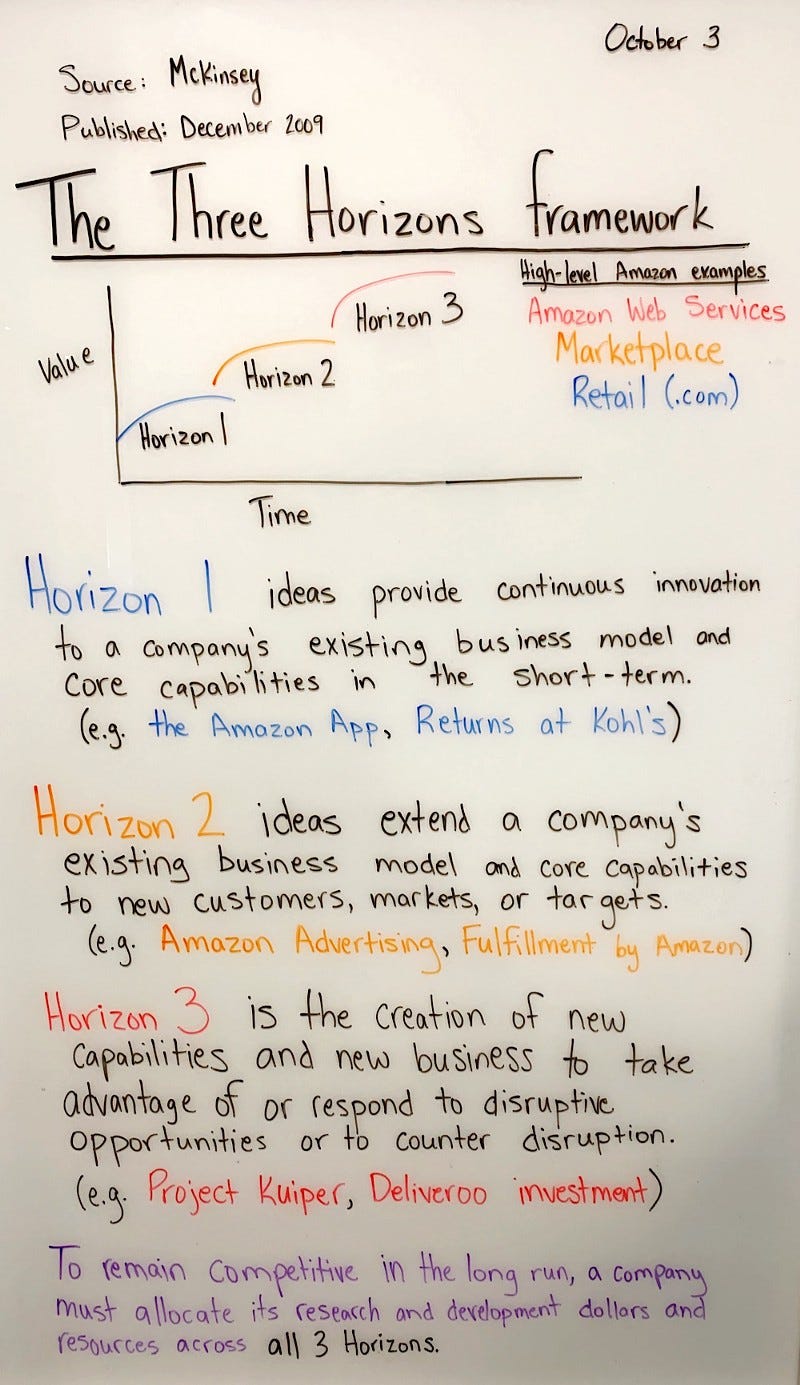 October 3
Source: McKinsey
Published: December 2009
The Three Horizons framework
High-level Amazon examples
Amazon Web Services
Marketplace
Retail (.com)
Value
Horizon 3
Horizon 2
Horizon 1
Time
Horizon 1 ideas provide continuous innovation
to a company's existing business model and
core capabilities in the short-term.
(e.g. the Amazon App, Returns at Kohl's)
Horizon 2 ideas extend a company's
existing business model and core capabilities
to new customers, markets, or targets.
(e.g. Amazon Advertising, Fulfillment by Amazon)
Horizon 3 is the creation of new
capabilities and new business to take
advantage of or respond to disruptive
opportunities or to counter disruption.
(e.g. Project Kuiper, Deliveroo investment)
To remain competitive in the long run, a company
must allocate its research and development dollars and
resources across all 3 Horizons.